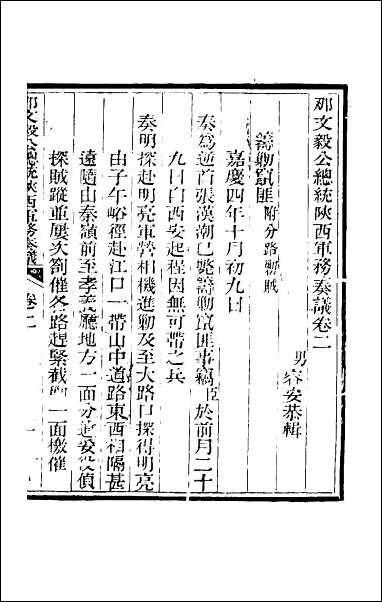 那文毅公總統陝西軍務奏議卷二
男容安恭輯
籌勦竄匪 附分路勦賊
嘉慶四年十月初九日
奏爲逆首張漢潮已斃籌勦竄匪事竊臣於前月二十
九日自西安起程因無可帶之兵
奏明探赴明亮軍營相機進勦及至大路口探得明亮
由子午峪徑赴江口一帶山中道路東西相隔甚
遠隨由秦嶺前至孝義廳地方一面分遣妥役偵
探賊蹤並屢次劄催各路趕緊截 一面檄催
那文毅公總統陝西軍務奏議 卷二